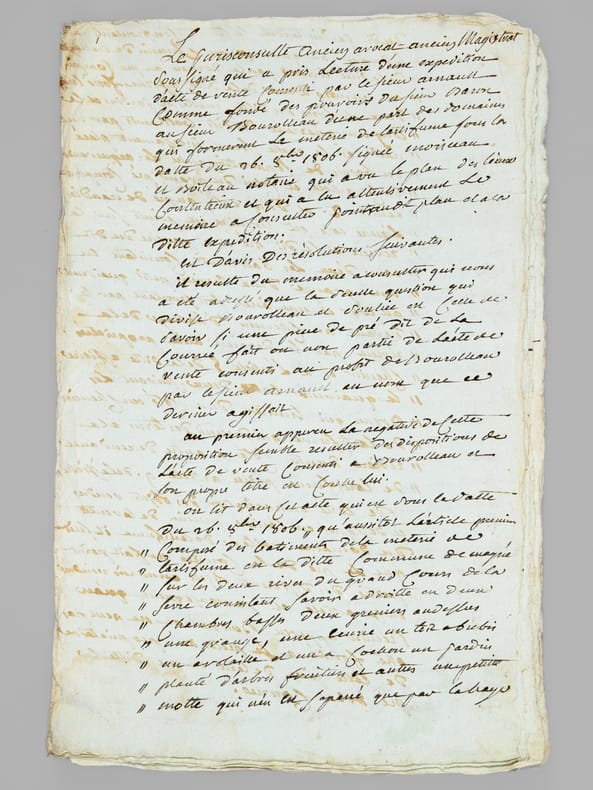 Le jurisconsulte ancien avocat ancien Magistrat
Soussigné qui a pris Lecture dune expedition
dacte de vente consentie par le sieur arnault
Comme fondé des pouvoirs du sieur Baron
au sieur Bourolleau dune part des domaines
qui formerent Le meterie de lartifume sous la
datte du 26. 8bre 1806. signé
et Boileau notaire qui a vu le plan des lieux
Contentieux et qui a lu attentivement Le
memoire a Consulter joint au dit plan et a la
ditte expedition.
est Davis Des résolutions suivantes.
il resulte du memoire a consulter qui nous
a été adressé que la seulle question qui
divise Bourolleau et est Celle de
savoir si une piece de pré dit de La
Courrie fait ou non partie de Lacte de
vente consenti au profit de Bourolleau
par le sieur arnault au nom que ce
dernier agissoit
au premier appercu La negative de Cette
proposition semble resulter des dispositions de
Lacte de vente Consenti a Bourolleau et
son propre titre est Contre lui.
on lit dans Cet acte qui est sous la datte
Du 26. 8bre 1806. " qu'aussitot Larticle premier
" Composé des batiments de la meterie de
" lartifume en la ditte Commune de magné
" sur les deux rives du grand Cours de la
" sevre consistant savoir a droitte en deux
" Chambres basses deux greniers audessus
" une grange, une ecurie un toit a brebis
" un a volaille et un a Cochon un jardin
" planté darbres fruitiers et autres une petitte
" motte qui nen est separée que par la haye